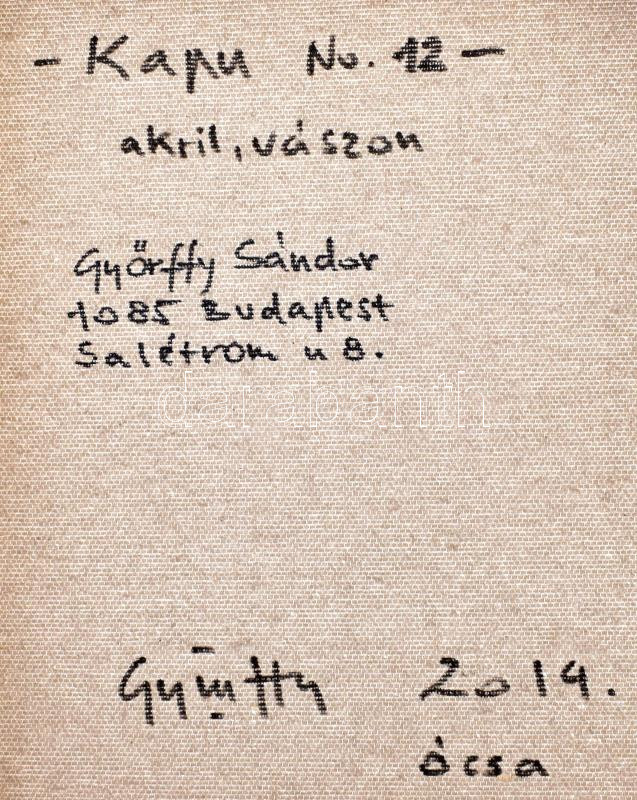 - Kapu No. 12 -
akril, vászon
Győrffy Sándor
1085 Budapest
Salétrom u 8.
darabanth
Győrffy 2014.
ócsa